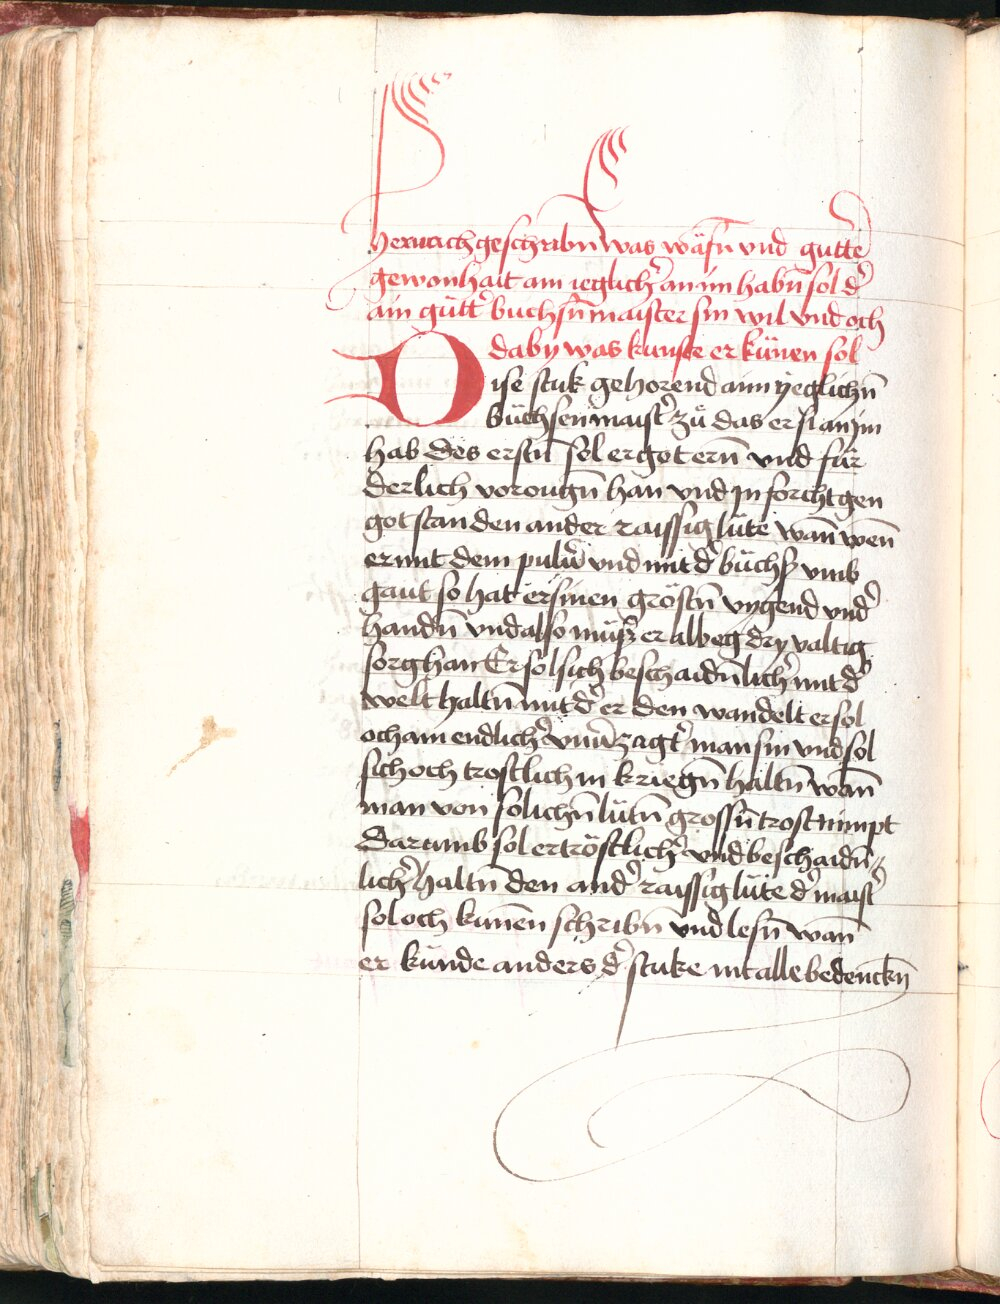 Hernach geschribn̄ was wäsn̄ vnd gutte
gewonhait ain ieglichr̄ an im habn̄ sol dr̄
ain gůttr̄ buchsn̄maister sin wil vnd och
daby was kunste er künen sol
Dise stuk gehorend aim yeglichn̄
büchsenmaistr̄ zů das er si an ym
hab Des erstn̄ sol er got ern̄ vnd für
derlich vor ougn̄ han vnd in forcht gen
got stan den ander raissig lüte wan̄ wen̄
er mit dem pulūr vnd mit dr̄ büchs vmb
gaut so hat er sinen gröstn̄ vygend vndr̄
handn̄ vnd also můß er albeg dry valtig
sorg han Er sol sich beschaidn̄lichr̄ mit dr̄
welt haltn̄ mit dr̄ er den wandelt er sol
och ain endlichr̄ vnūrzagtr̄ man sin vnd sol
sich och trostlich in kriegn̄ haltn̄ wan̄
man von solichn̄ lütn̄ grossn̄ trost nimpt
Darumb sol er tröstlichr̄ vnd beschaidn̄
lichr̄ haltn̄ den andr̄ raissig lüte dr̄ maistr̄
sol och kunen̄ schribn̄ vnd lesn̄ wan̄
er kunde anders dr̄ stuke nit alle bedenckn̄